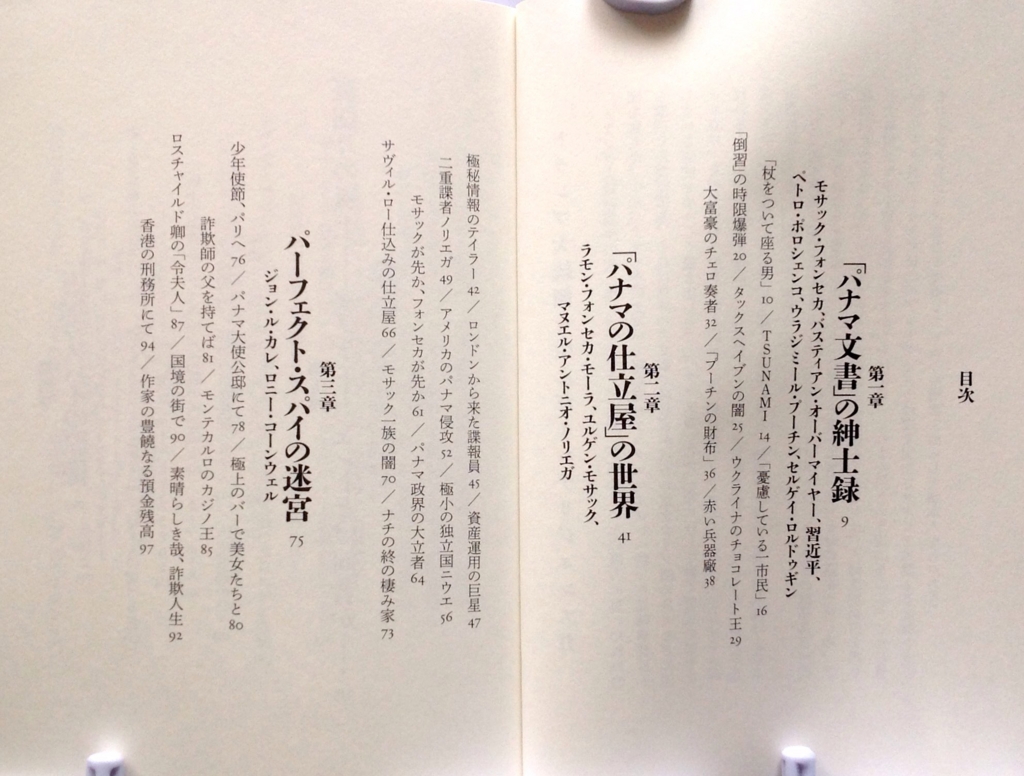 目次
第一章
「パナマ文書」の紳士録 9
モサック・フォンセカ、バスティアン・オーバーマイヤー、習近平、
ペトロ・ポロシェンコ、ウラジミール・プーチン、セルゲイ・ロルドゥギン
「杖をついて座る男」 10 / TSUNAMI 14 / 「憂慮している一市民」 16
「倒習」の時限爆弾 20 / タックスヘイブンの闇 25 / ウクライナのチョコレート王 29
大富豪のチェロ奏者 32 / 「プーチンの財布」 36 / 赤い兵器廠 38
第二章
「パナマの仕立屋」の世界 41
ラモン・フォンセカ・モーラ、ユルゲン・モサック、
マヌエル・アントニオ・ノリエガ
極秘情報のテイラー 42 / ロンドンから来た諜報員 45 / 資産運用の巨星 47
二重諜者ノリエガ 49 / アメリカのパナマ侵攻 52 / 極小の独立国ニウエ 56
モサックが先か、フォンセカが先か 61 / パナマ政界の大立者 64
サヴィル・ロー仕込みの仕立屋 66 / モサック一族の闇 70 / ナチの終の棲み家 73
第三章
パーフェクト・スパイの迷宮 75
ジョン・ル・カレ、ロニー・コーンウェル
少年使節、パリへ 76 / パナマ大使公邸にて 78 / 極上のバーで美女たちと 80
詐欺師の父を持てば 81 / モンテカルロのカジノ王 85
ロスチャイルド卿の「令夫人」 87 / 国境の街で 90 / 素晴らしき哉、詐欺人生 92
香港の刑務所にて 94 / 作家の豊饒なる預金残高 97